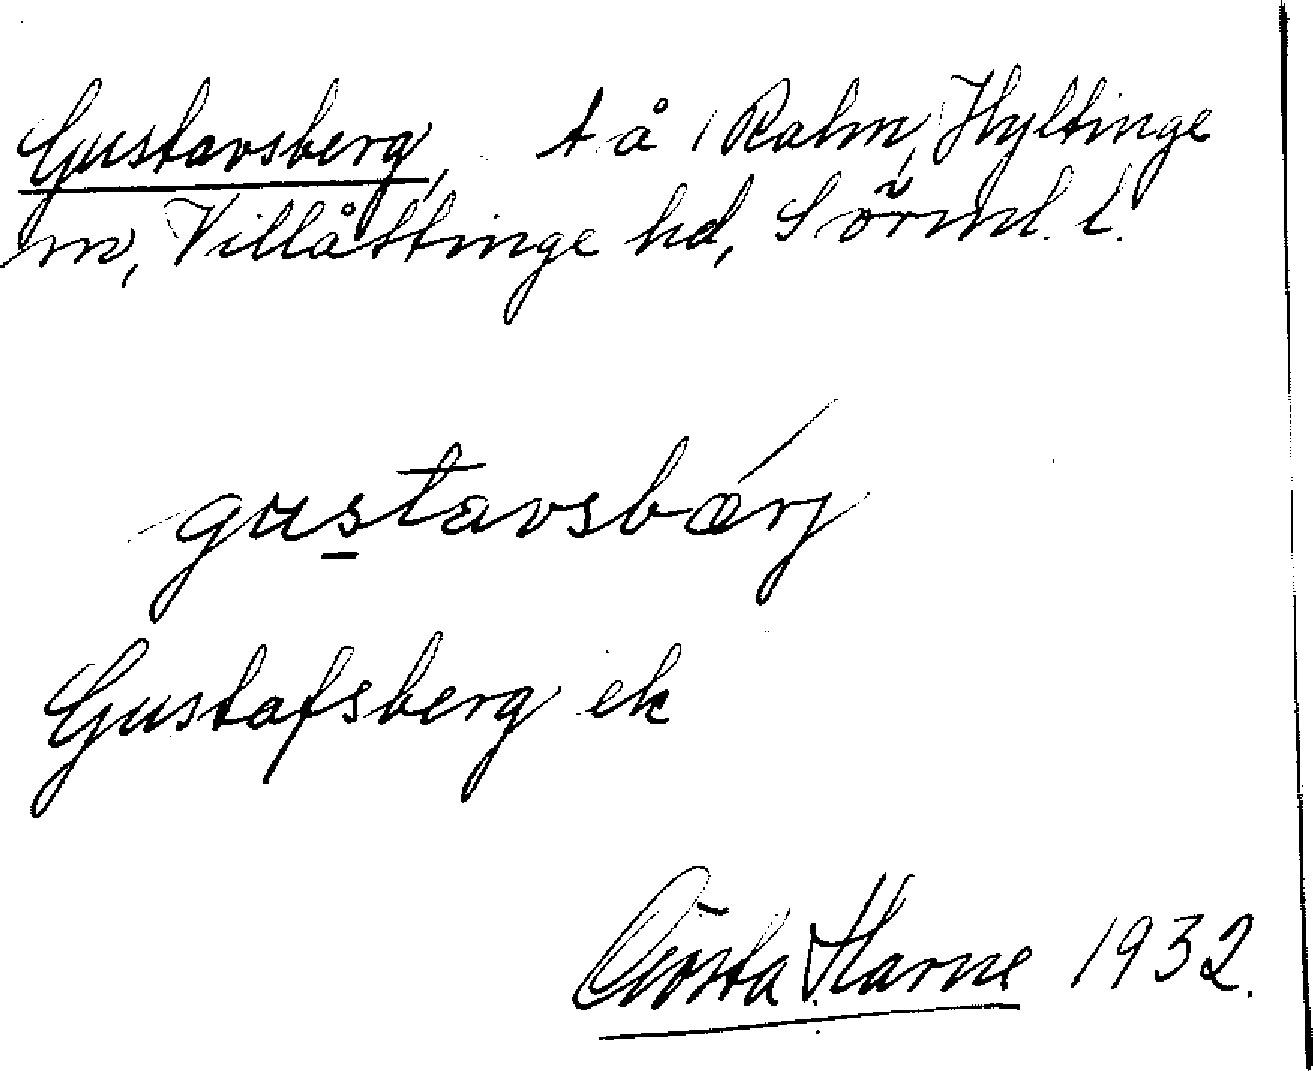 Gustavsberg, t å Ralm, Hyltinge
sn, Villåttinge hd, Sörml. l.
gustavsbærj
Gustafsberg ek
Gösta Harne 1932.